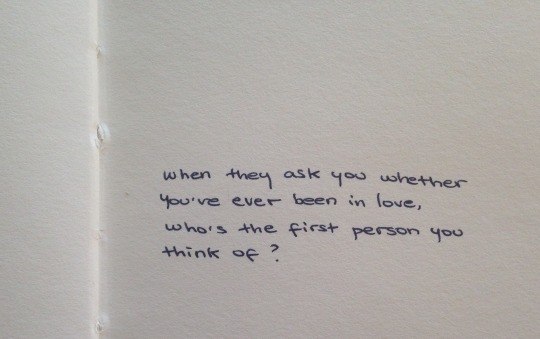 when they ask you whether
you've ever been in love,
who's the first person you
think of ?